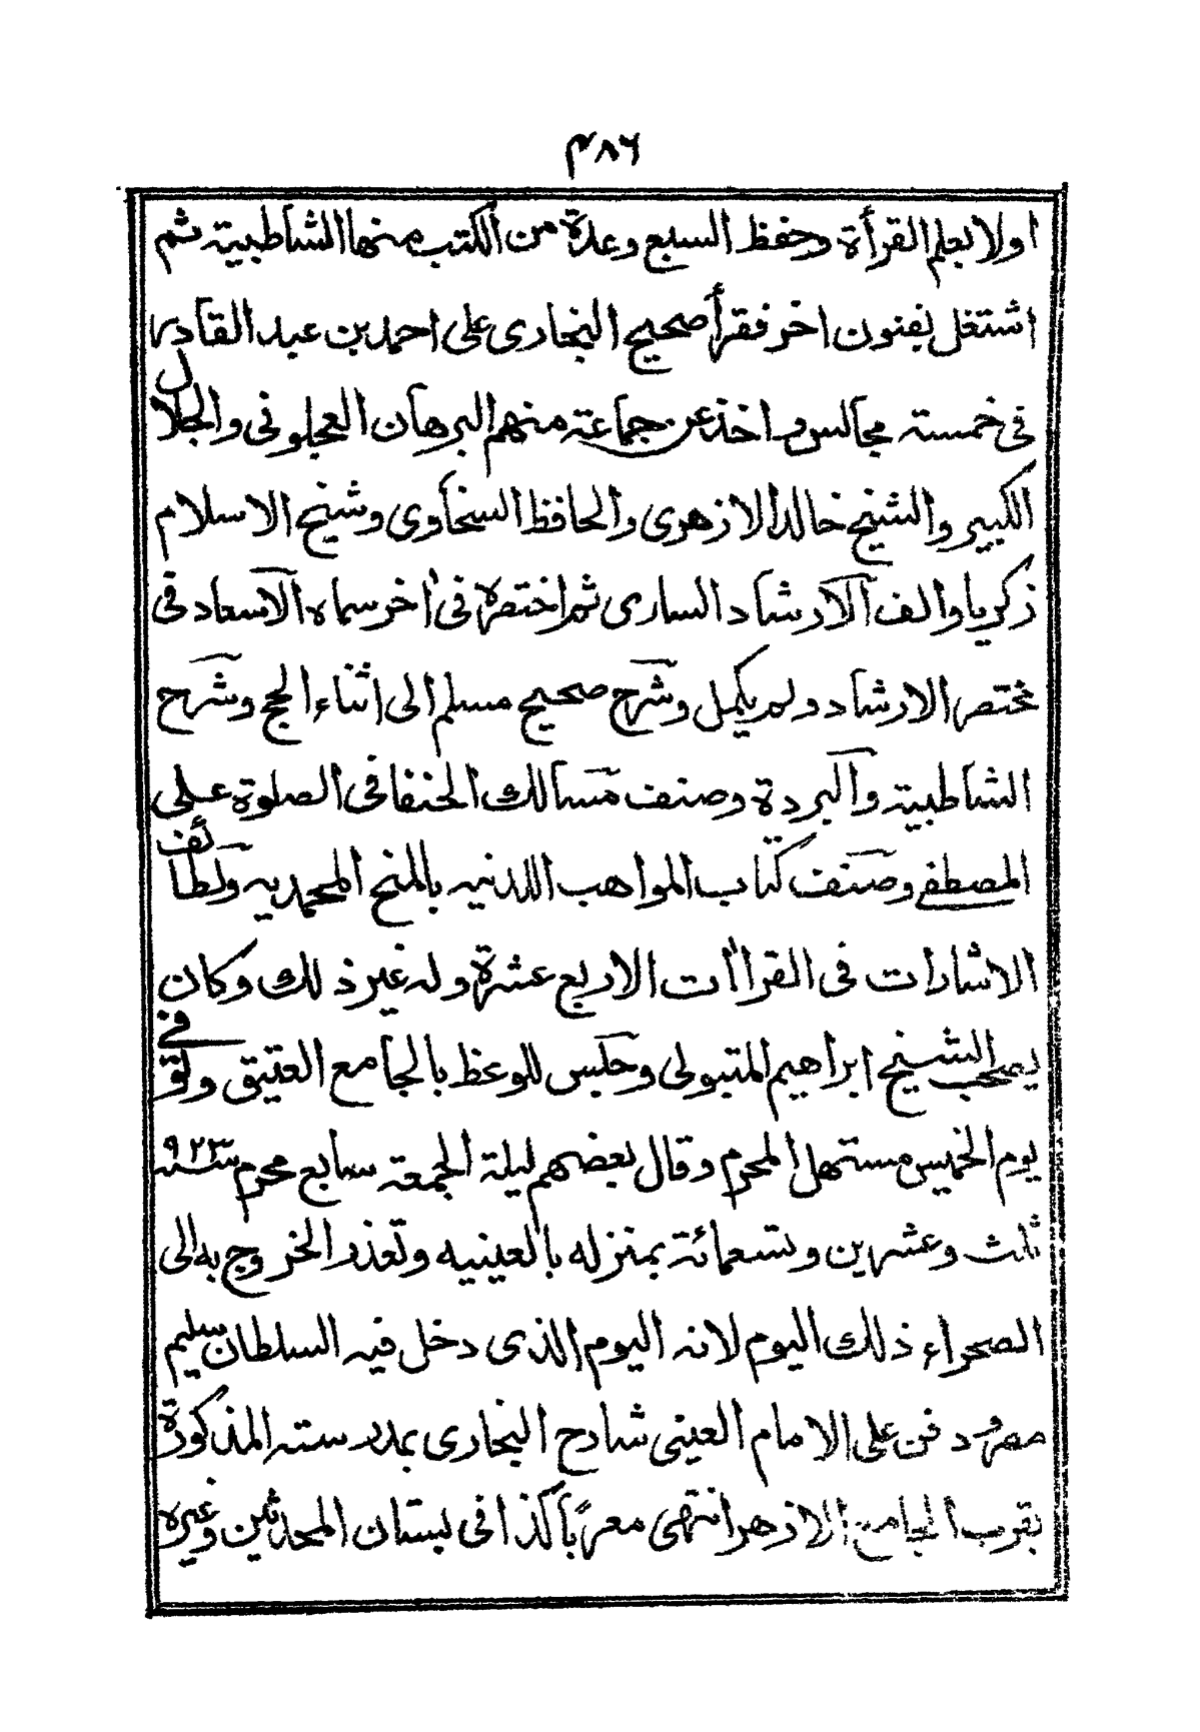 ۴۸۶
اولا بعلم القرأة وحفظ السبع وعدة من الكتب منها الشاطبية ثم
اشتغل بفنون اخر فقرأ صحيح البخارى على احمد بن عبد القادر
فى خمسة مجالس واخذ عن جماعة منهم البرهان العجلونى والجلال
الكبير والشيخ خالد الازهرى والحافظ السخاوى وشيخ الاسلام
زكريا والف الارشاد السارى ثم اختصره فى اخر سماه الاسعاد فى
مختصر الارشاد ولم يكمل وشرح صحيح مسلم الى اثناء الحج وشرح
الشاطبية والبردة وصنف مسالك الحنفا فى الصلوة على
المصطفى وصنف كتاب المواهب اللدنيه بالمنح المحمديه ولطائف
الاشارات فى القراأت الاربع عشرة وله غير ذلك وكان
يصحب الشيخ ابراهيم المتبولى وجلس للوعظ بالجامع العتيق وتوفى
يوم الخميس مستهل المحرم وقال بعضهم ليلة الجمعة سابع محرم سنة ۹۲۳
ثلث وعشرين وتسعمائة بمنزله بالعينيه وتعذر الخروج به الى
الصحراء ذلك اليوم لانه اليوم الذى دخل فيه السلطان سليم
مصر ودفن على الامام العينى شارح البخارى بمدرسته المذكورة
بقرب الجامع الازهر انتهى معربا كذا فى بستان المحدثين وغيره